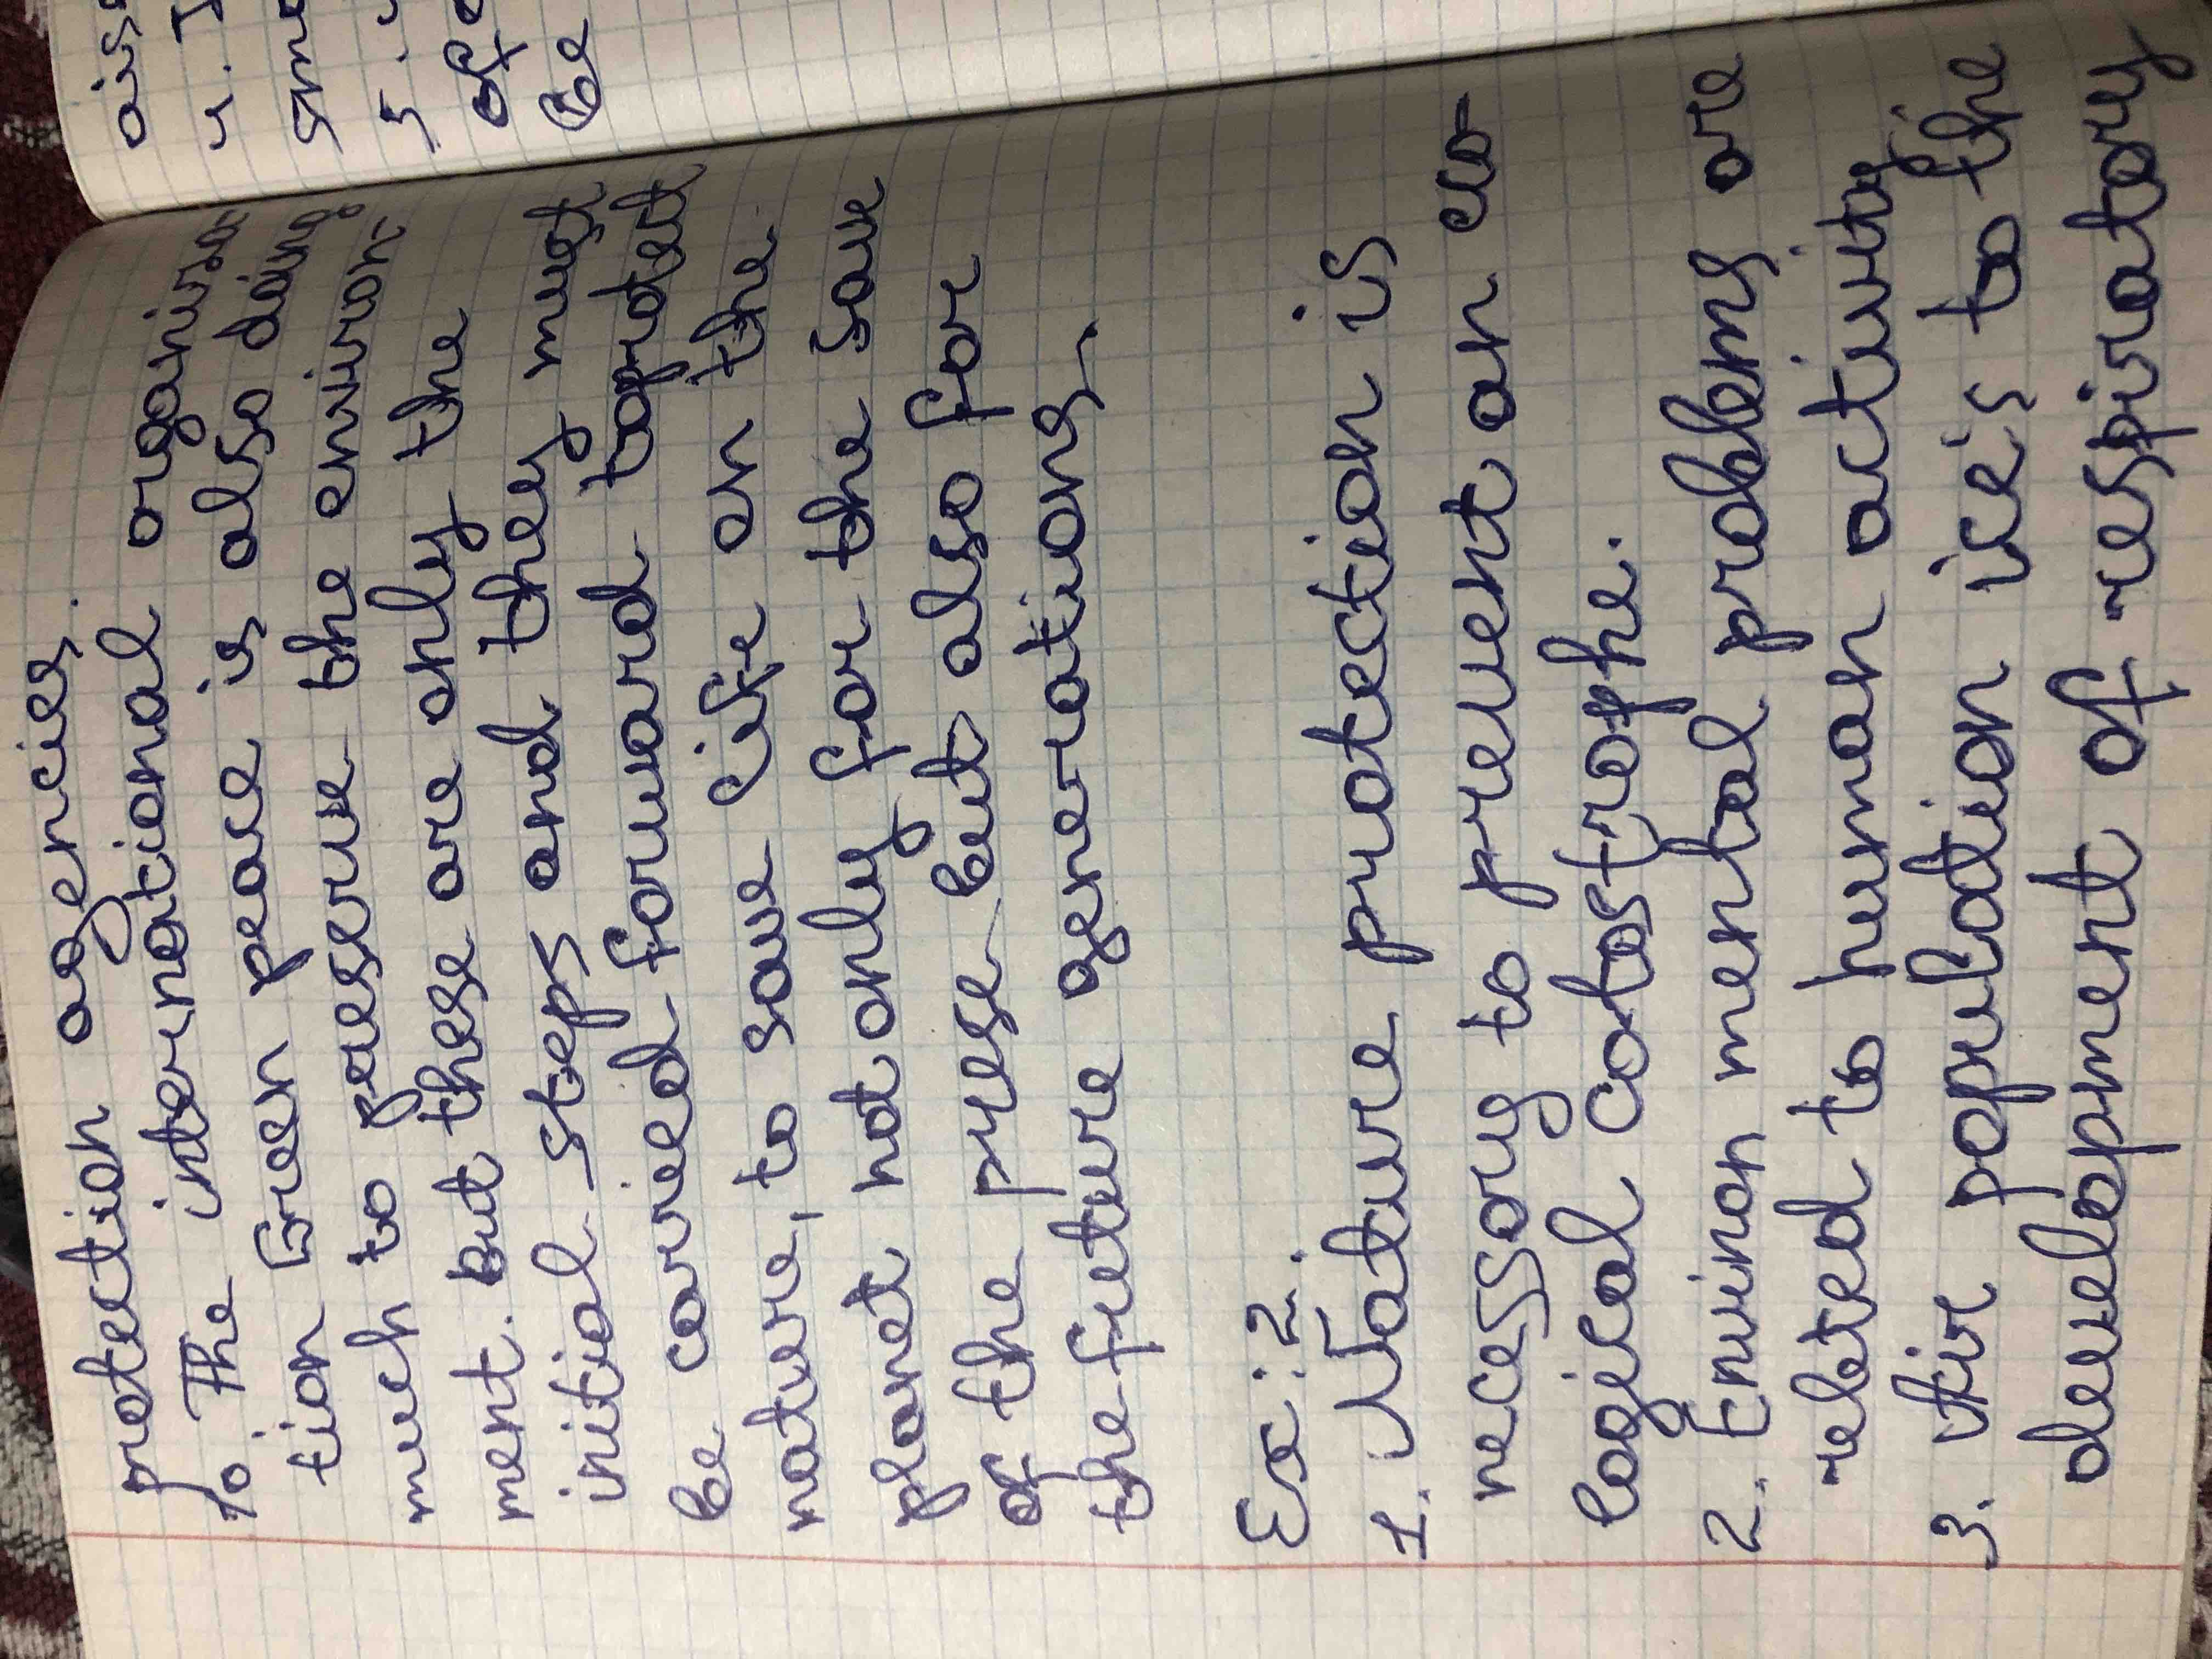 protection agencies.
10 The international organisa
tion Green peace is also doing
much to preserve the environ-
ment. But these are only the
initial steps and they must
be carried forward to protect
nature, to save life on the
planet not only for the save
of the prese but also for
the future generations.
Ex: 2.
1. Nature protection is
necessory to prevent an eco-
logical catastrophe.
2. Environ mental problems are
releted to human activity
3. Air population ice's to the
development of respiratory
ais
4. I
sme
5.
of
be